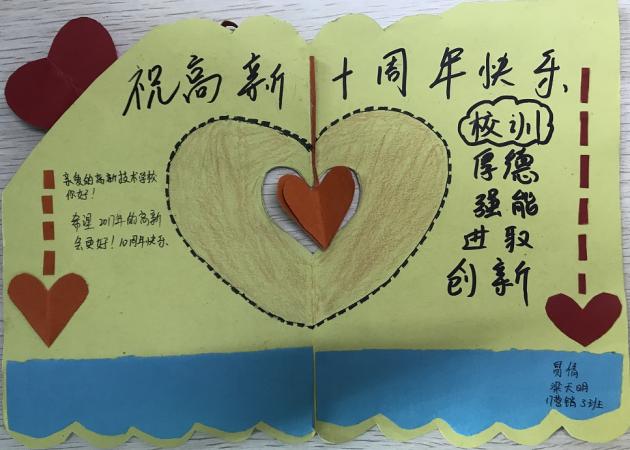 祝高新十周年快乐
校训
厚德
强能
进取
创新
亲爱的高新技术学校
你好！
希望2017年的高新
会更好！10周年快乐
员倩
梁天明
17营销3班